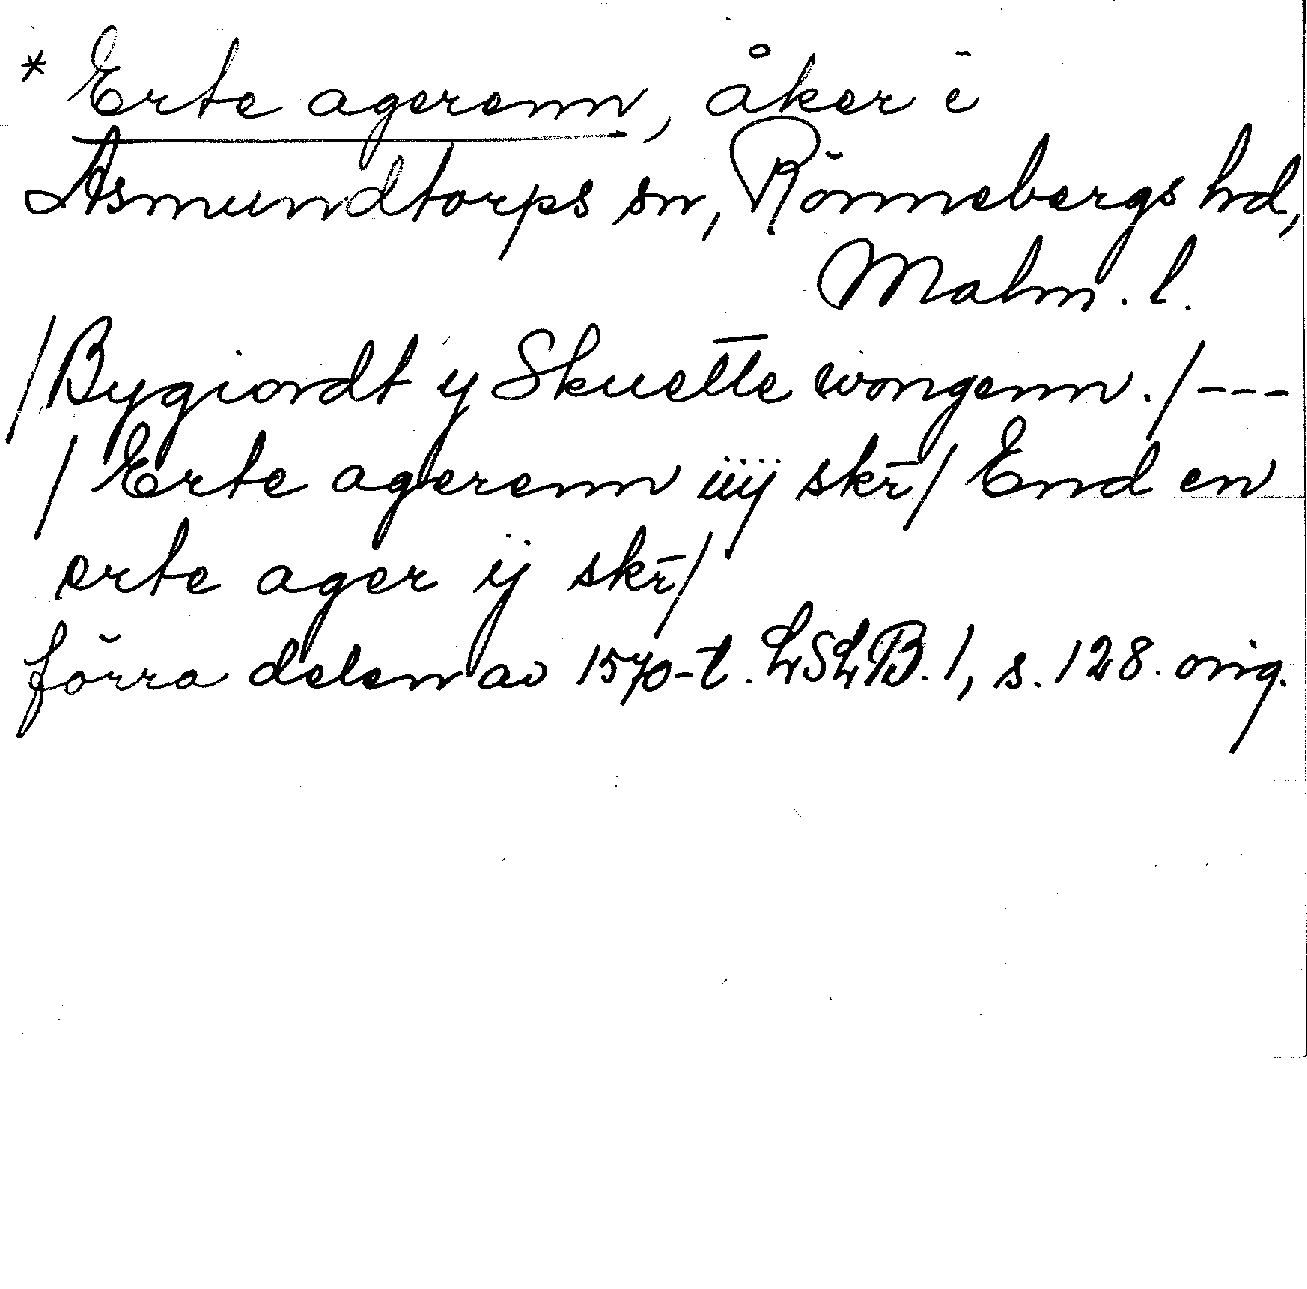 * Erte agerenn, åker i
Asmundtorps sn, Rönnebergs hd,
Malm. l.
/Bygiordt y Skuette wongenn./---
/Erte agerenn iiij skr/ End en
erte ager ij skr/
förra delen av 1570-t. LSLB. 1, s. 128. orig.